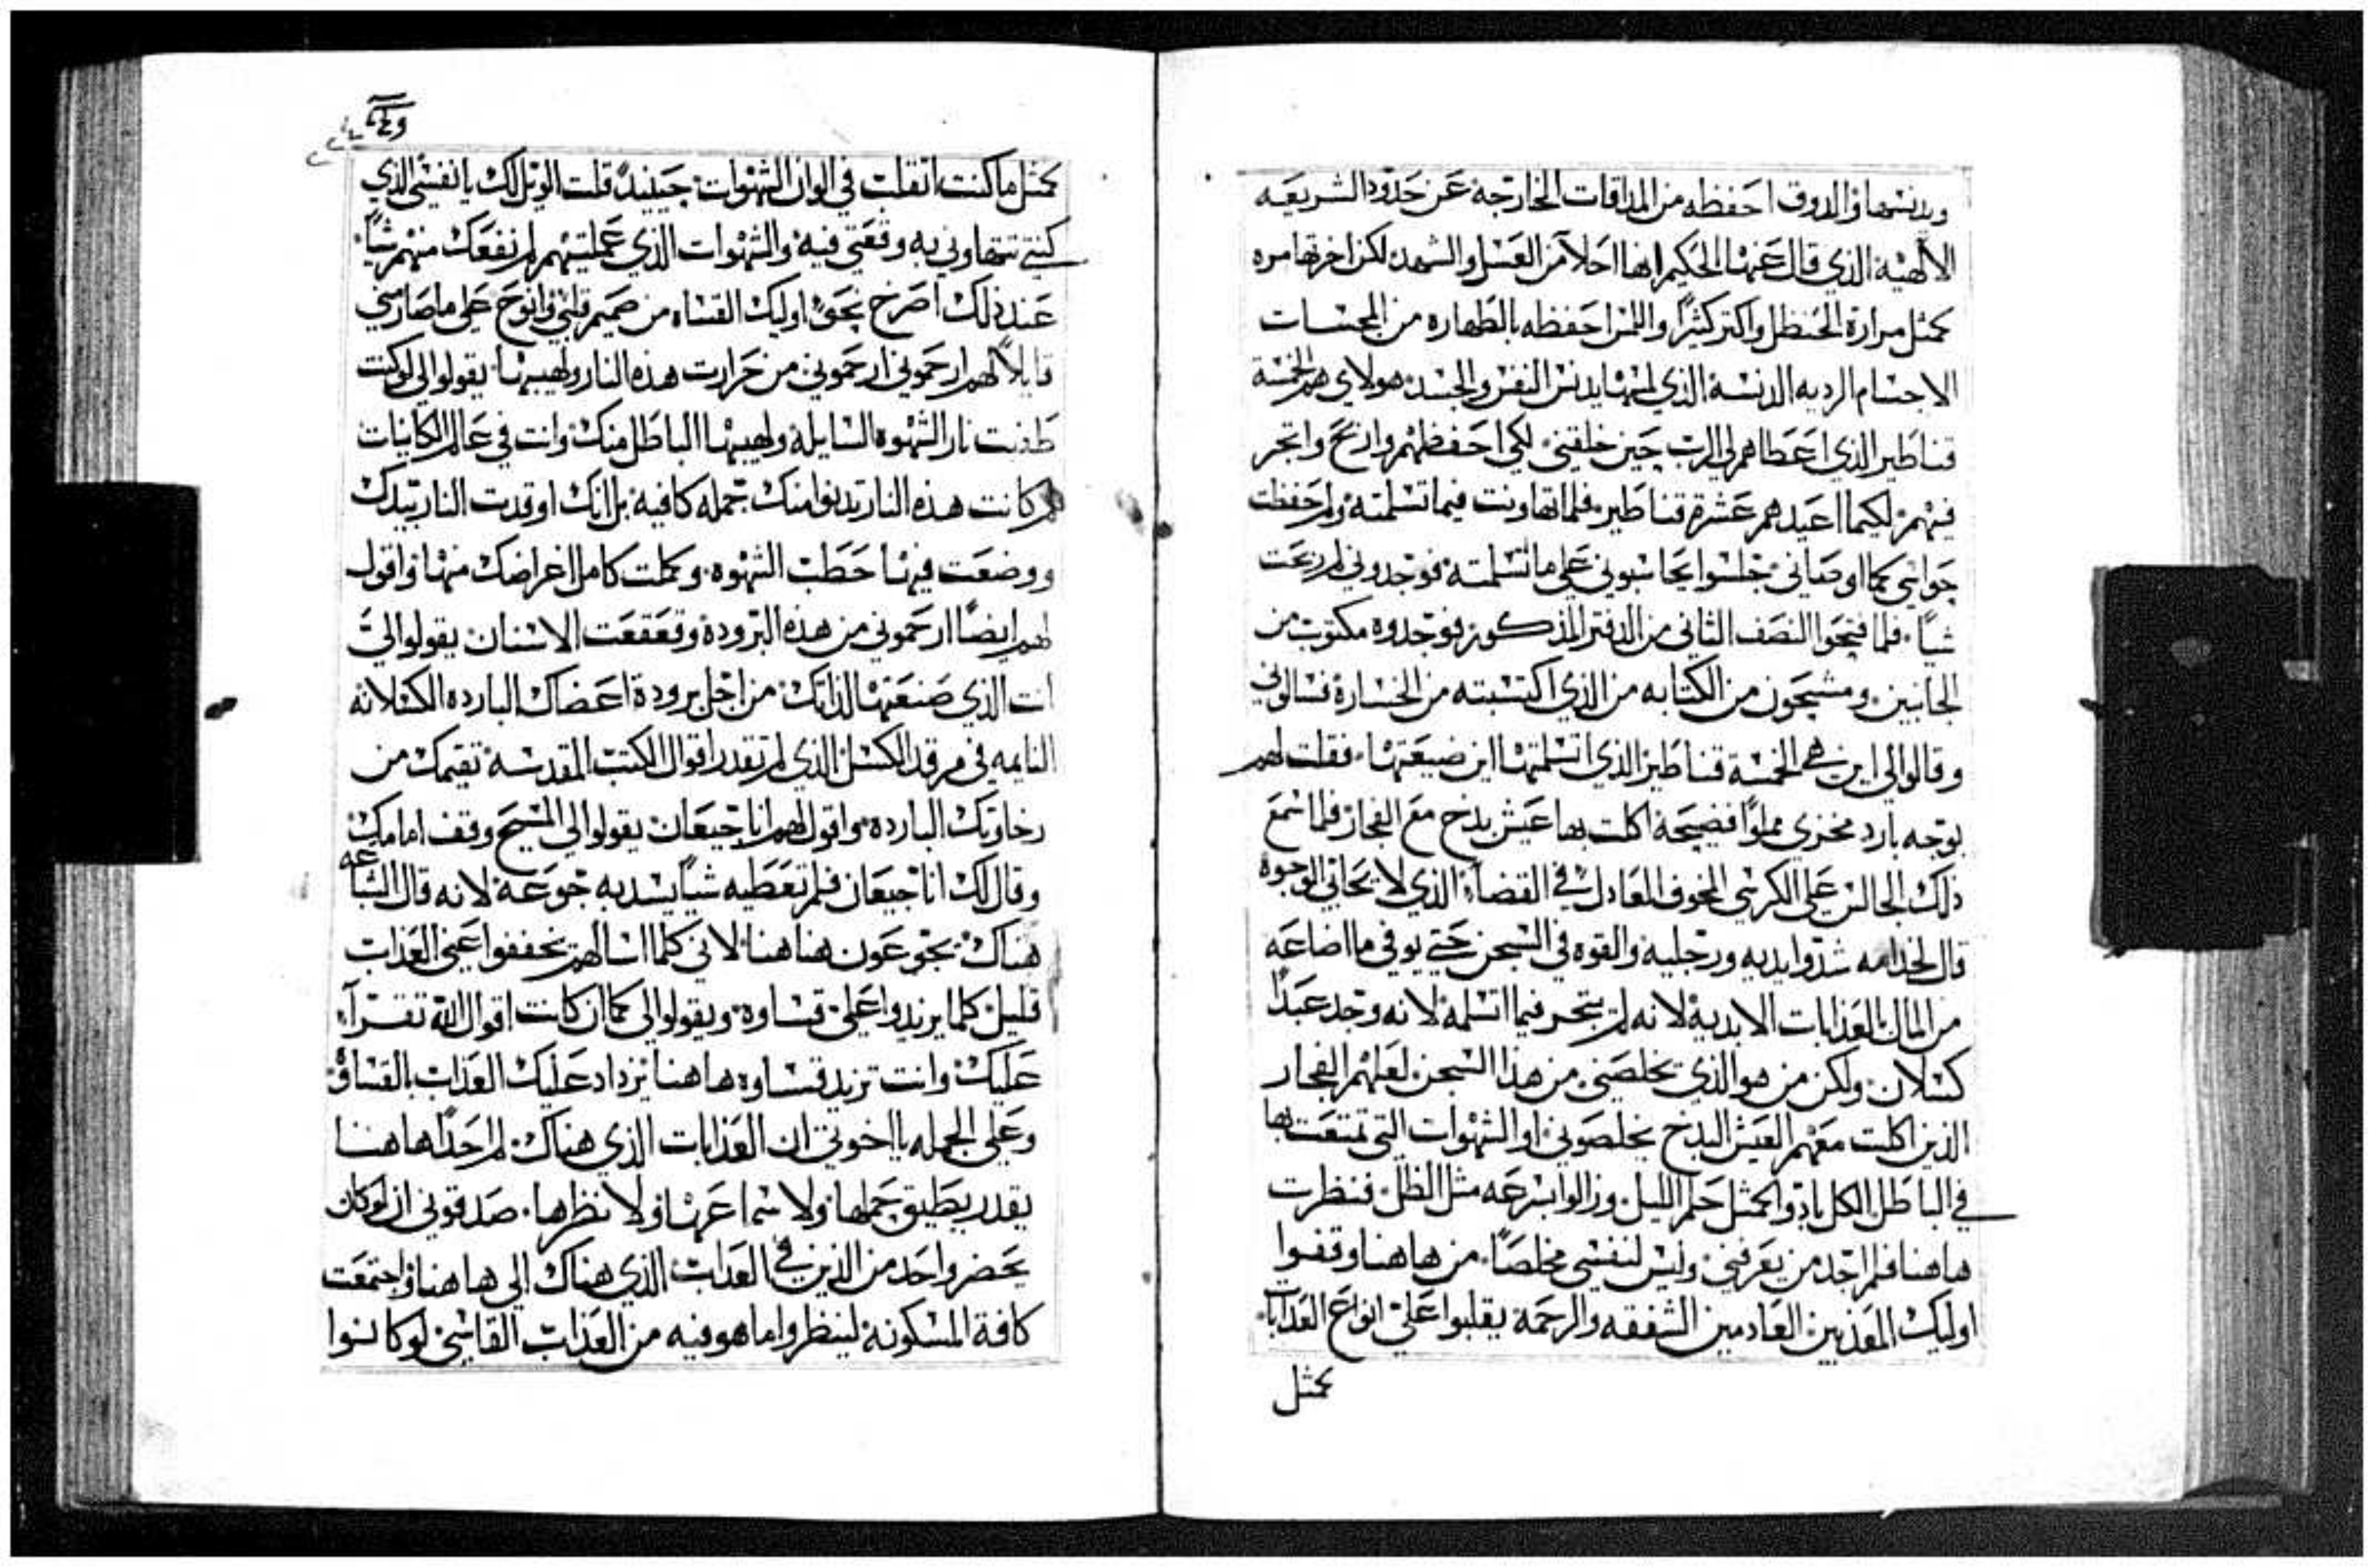 ويدنسها والدوق احفظه من المداقات الخارجة عن حدود الشريعه
الالهية الذي قال عنها الحكيم انها احلا من العسل والشهد لكن اخرتها مره
كمثل مرارة الحنظل واكتر كثيرًا واللمس احفظه بالطهاره من المجسات
الاجسام الرديه الدنسة الذي لمسها يدنس النفس والجسد هولاي هم الخمسة
قناطير الذي اعطاهم لي الرب حين خلقني لكي احفضهم واربح واتجر
فيهم لكيما اعيدهم عشرة قناطير فلما تهاونت فيما تسلمته ولم حفظت
حواسي كما اوصاني جلسوا يحاسبوني على ما تسلمته فوجدوني لم ربحت
شيًا فلما فتحوا النصف الثاني من الدفتر المذكور فوجدوه مكتوب من
الجانبين ومشحون من الكتابه من الذي اكتسبته من الخسارة فسالوني
وقالوا لي اين هم الخمسة قناطير الذي اتسلمتها اين ضيعتها فقلت لهم
بوجه بارد مخزي مملوًا فضيحة اكلت بها عيش بدخ مع الفجار فلما سمع
ذلك الجالس على الكرسي المخوف العادل في القضاء الذي لا يحابي الوجوه
قال لخدامه شدوا يديه ورجليه والقوه في السجن حتي يوفي ما اضاعه
من المال بالعذابات الابدية لانه لم يتجر فيما اتسلمه لانه وجد عبدًا
كسلان ولكن من هو الذي يخلصني من هذا السجن لعلهم الفجار
الذين اكلت معهم العيش البدخ يخلصوني او الشهوات التي تمتعت بها
في الباطل الكل بادوا كمثل حلم الليل وزالوا بسرعه مثل الظل فنظرت
هاهنا فلم اجد من يعرفني وليس لنفسي مخلصًا من هاهنا وقفوا
اوليك المعذبين العادمين الشفقه والرحمة يقلبوا علي انواع العذابات
كمثل
كمثل ما كنت اتقلب في الوان الشهوات حينيذ قلت الويل لك يا نفسي الذي
كنتي تتهاوني به وقعتي فيه والشهوات الذي عملتيهم لم نفعك منهم شيًا
عند ذلك اصرخ نحو اوليك القساه من صميم قلبي وانوح على ما صار مني
قايلًا لهم ارحموني ارحموني من حرارت هذه النار ولهيبها يقولوا لي لو كنت
طفيت نار الشهوه السايلة ولهيبها الباطل منك وانت في عالم الكاينات
لم كانت هذه النار تدنوا منك جمله كافيه بل انك اوقدت النار بيدك
ووضعت فيها حطب الشهوه وكملت كامل اغراضك منها واقول
لهم ايضًا ارحموني من هذه البرودة وقعقعت الاسنان يقولوا لي
انت الذي صنعتها لذاتك من اجل برودة اعضاك البارده الكسلانه
النايمه في مرقد الكسل الذي لم تقدر اقوال الكتب المقدسة تقيمك من
رخاوتك البارده واقول لهم انا جيعان يقولوا لي المسيح وقف امامك
وقال لك انا جيعان فلم تعطيه شيًا يسد به جوعة لانه قال الشباعه
هناك يجوعون هنا هنا لاني كلما اسالهم يخففوا عني العذاب
قليل كلما يزيدوا علي قساوه ويقولوا لي كما ان كانت اقوال الله تقرآ
عليك وانت تزيد قساوه هاهنا يزداد عليك العذاب بالقساوة
وعلي الجمله يا اخوتي ان العذابات الذي هناك لم احدًا هاهنا
يقدر يطيق حملها ولا سماعها ولا نظرها صدقوني ان لو كان
يحضر واحد من الذين في العذاب الذي هناك الى هاهنا واجتمعت
كافة المسكونة لينظروا ما هو فيه من العذاب القاسي لو كانوا